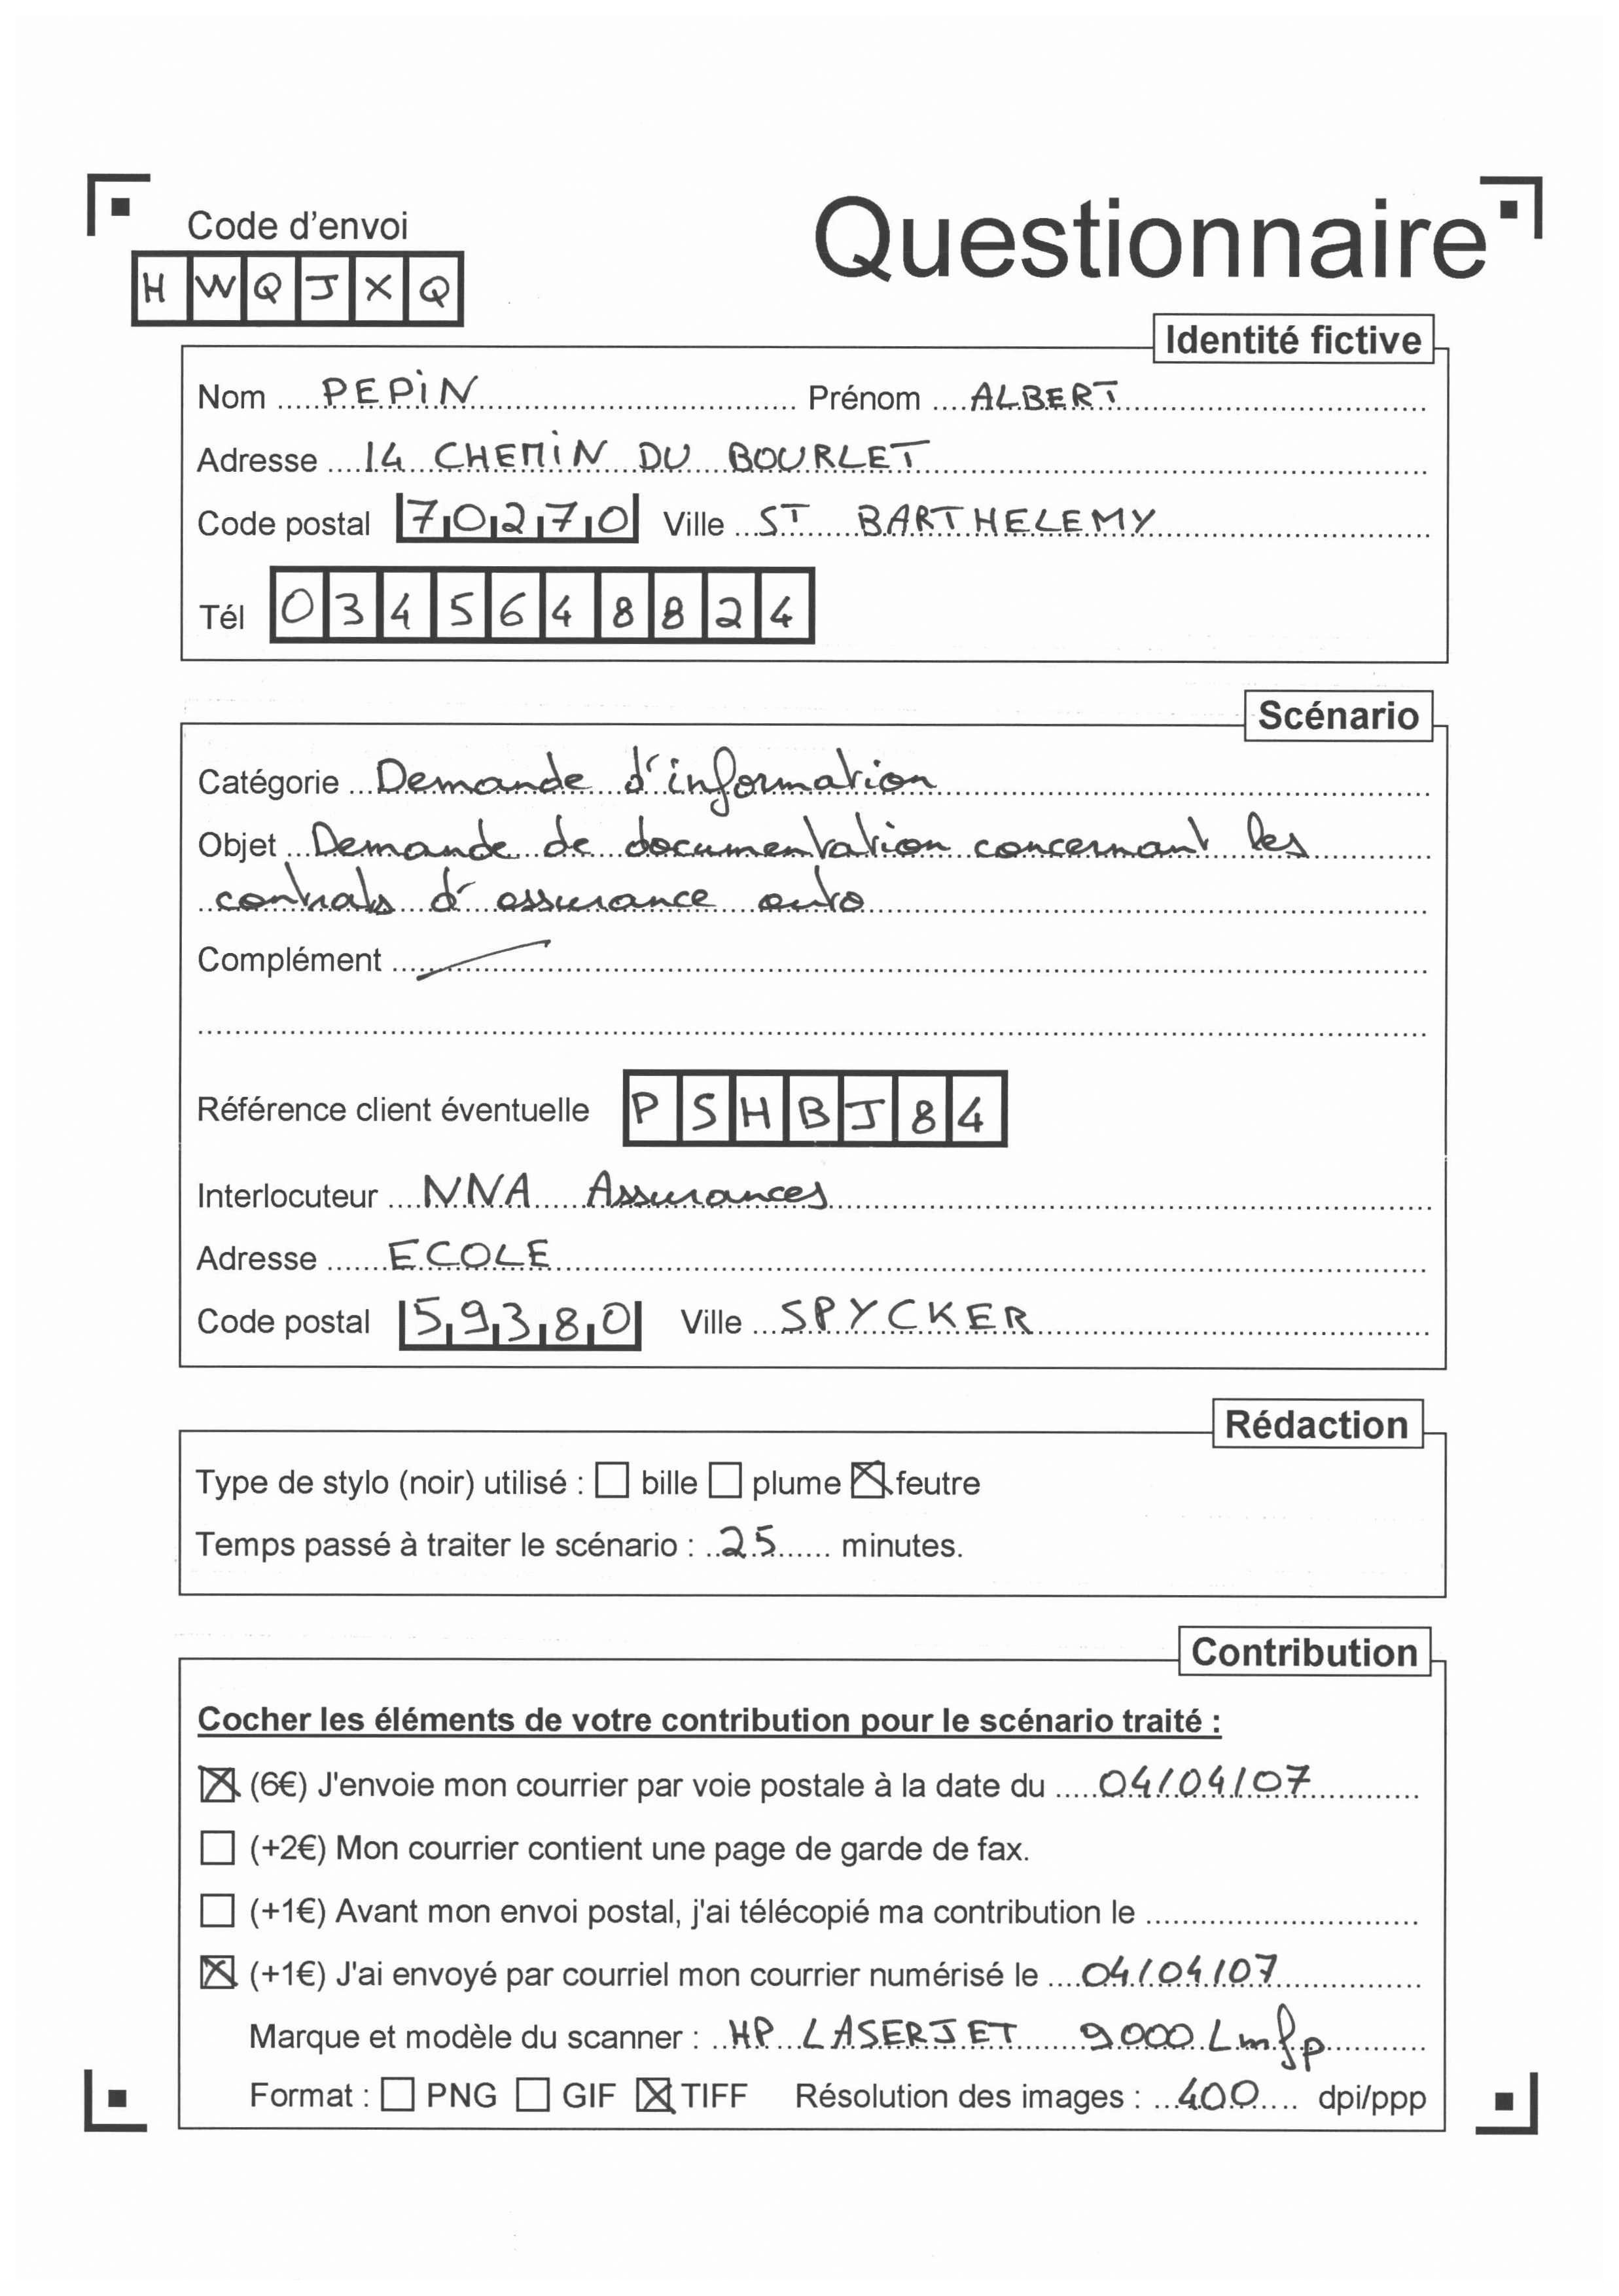 Code d'envoi
Questionnaire
H W Q J X Q
Identité fictive
Nom PEPIN Prénom ALBERT
Adresse 14 CHEMIN DU BOURLET
Code postal 70270 Ville ST BARTHELEMY
Tél 0345648824
Scénario
Catégorie Demande d'information
Objet Demande de documentation concernant les
contrats d'assurance auto
Complément
Référence client éventuelle PSHBJ84
Interlocuteur NNA Assurances
Adresse ECOLE
Code postal 59380 Ville SPYCKER
Rédaction
Type de stylo (noir) utilisé : ☐ bille ☐ plume ☒ feutre
Temps passé à traiter le scénario : 25 minutes.
Contribution
Cocher les éléments de votre contribution pour le scénario traité :
☒ (6€) J'envoie mon courrier par voie postale à la date du 04/04/07
☐ (+2€) Mon courrier contient une page de garde de fax.
☐ (+1€) Avant mon envoi postal, j'ai télécopié ma contribution le
☒ (+1€) J'ai envoyé par courriel mon courrier numérisé le 04/04/07
Marque et modèle du scanner : HP LASERJET 9000 Lmfp
Format : ☐ PNG ☐ GIF ☒ TIFF Résolution des images : 400 dpi/ppp